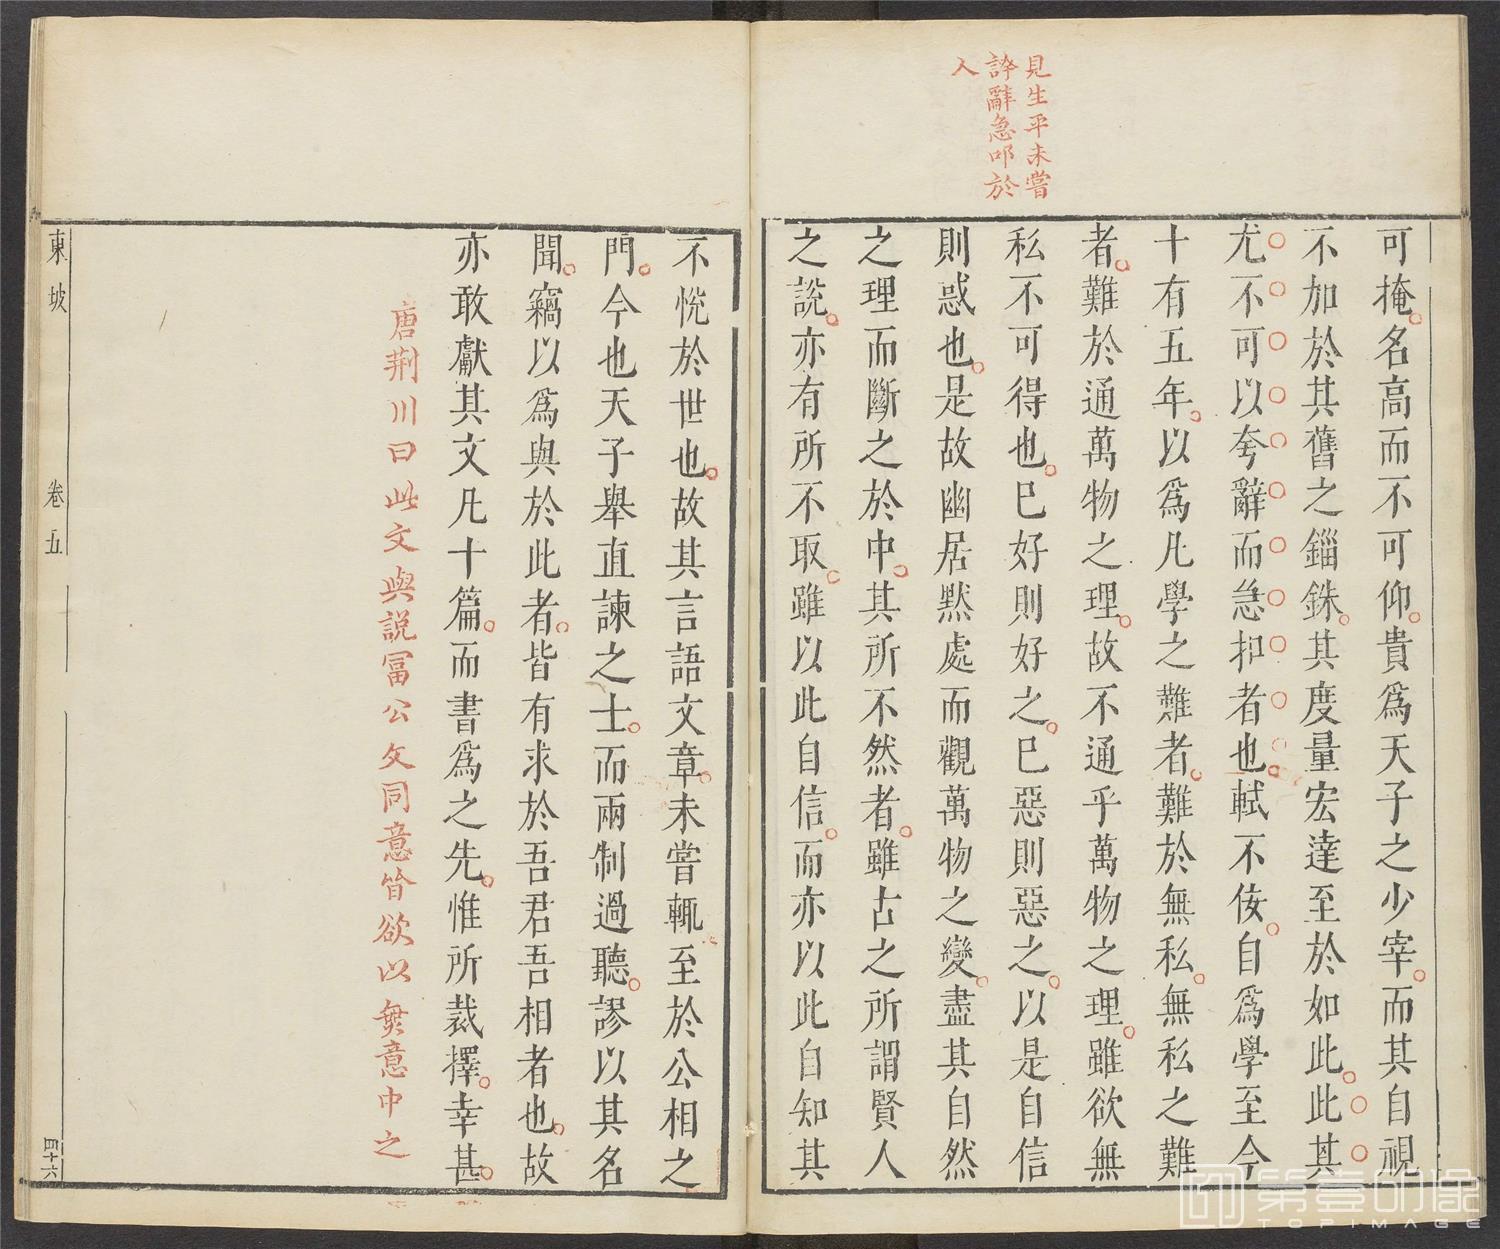 見生平未嘗
誇辭急叩於
人
可掩名高而不可仰貴爲天子之少宰而其自視
不加於其舊之錙銖其度量宏達至於如此此其
尤不可以夸辭而急扣者也軾不佞自爲學至今
十有五年以爲凡學之難者難於無私無私之難
者難於通萬物之理故不通乎萬物之理雖欲無
私不可得也已好則好之已惡則惡之以是自信
則惑也是故幽居默處而觀萬物之變盡其自然
之理而斷之於中其所不然者雖古之所謂賢人
之說亦有所不取雖以此自信而亦以此自知其
不悅於世也故其言語文章未嘗輒至於公相之
門今也天子舉直諫之士而兩制過聽謬以其名
聞竊以爲與於此者皆有求於吾君吾相者也故
亦敢獻其文凡十篇而書爲之先惟所裁擇幸甚
唐荆川曰此文與説冨公文同意皆欲以無意中之
東坡
卷五
四十六
第壹印像
TOPIMAGE